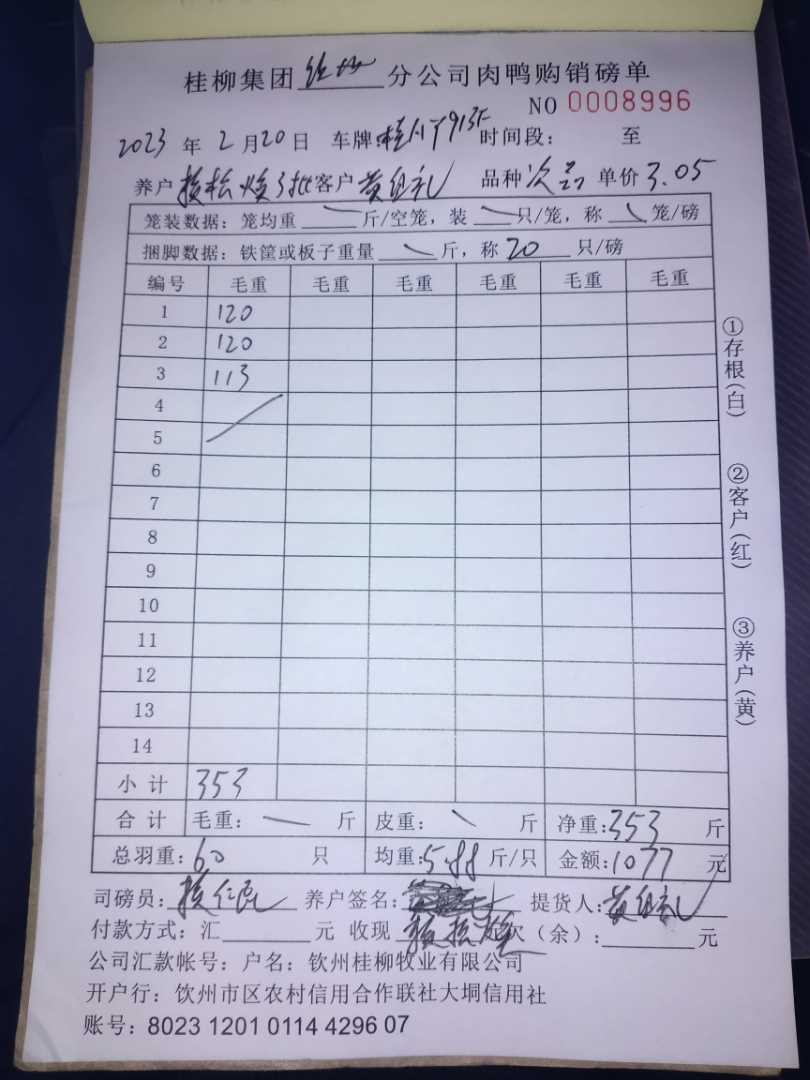 桂柳集团 钦州 分公司肉鸭购销磅单
NO 0008996
2023 年 2 月 20 日 车牌: 时间段: 至
养户 客户 黄 礼 品种 次品 单价 3.05
笼装数据: 笼均重 斤/空笼, 装 只/笼, 称 笼/磅
捆脚数据: 铁筐或板子重量 斤, 称 20 只/磅
编号 毛重 毛重 毛重 毛重 毛重 毛重
1 120
2 120
3 113
4
5
6
7
8
9
10
11
12
13
14
小计 353
合计 毛重: 斤 皮重: 斤 净重: 353 斤
总羽重: 60 只 均重: 5.88 斤/只 金额: 1077 元
司磅员: 养户签名: 提货人: 黄 礼
付款方式: 汇 元 收现 欠(余): 元
公司汇款帐号: 户名: 钦州桂柳牧业有限公司
开户行: 钦州市区农村信用合作联社大垌信用社
账号: 8023 1201 0114 4296 07
①存根(白)
②客户(红)
③养户(黄)